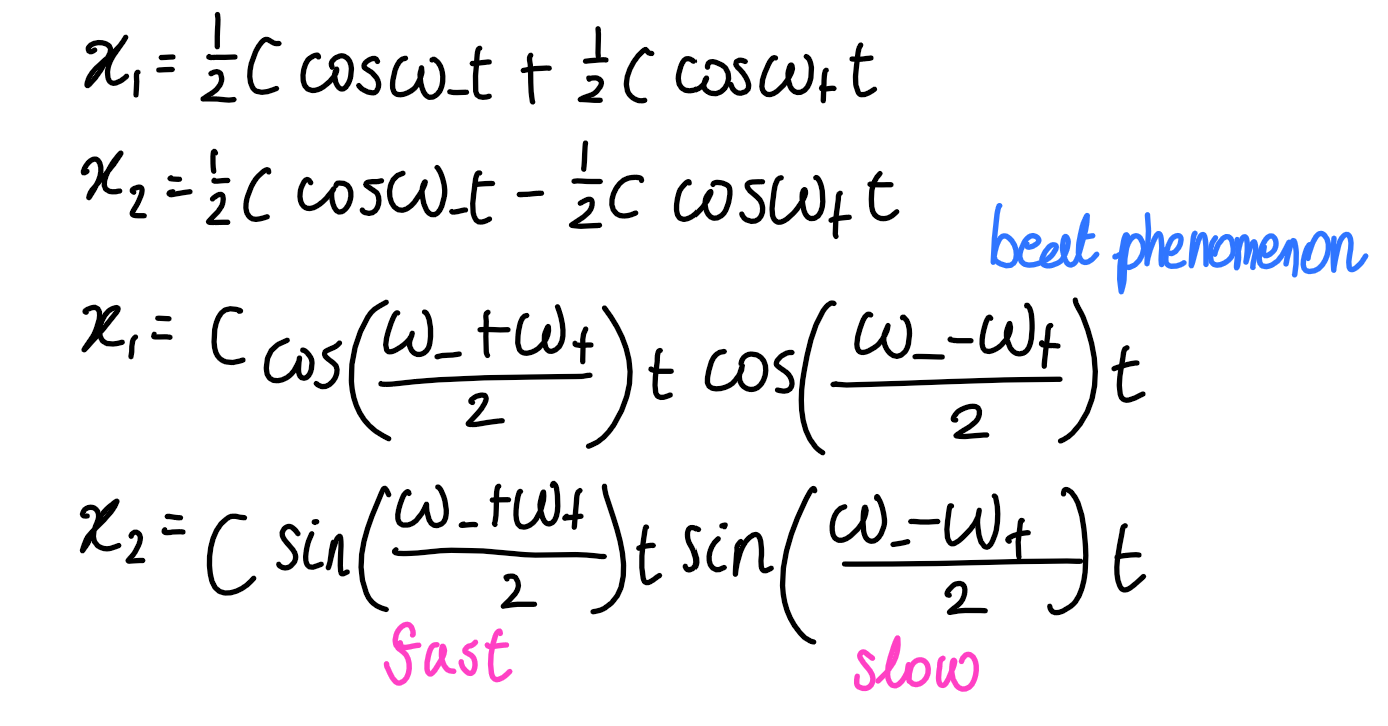 x₁ = ½ C cosω₋t + ½ C cosω₊t
x₂ = ½ C cosω₋t - ½ C cosω₊t
beat phenomenon
x₁ = C cos((ω₋ + ω₊)/2) t cos((ω₋ - ω₊)/2) t
x₂ = C sin((ω₋ + ω₊)/2) t sin((ω₋ - ω₊)/2) t
fast slow